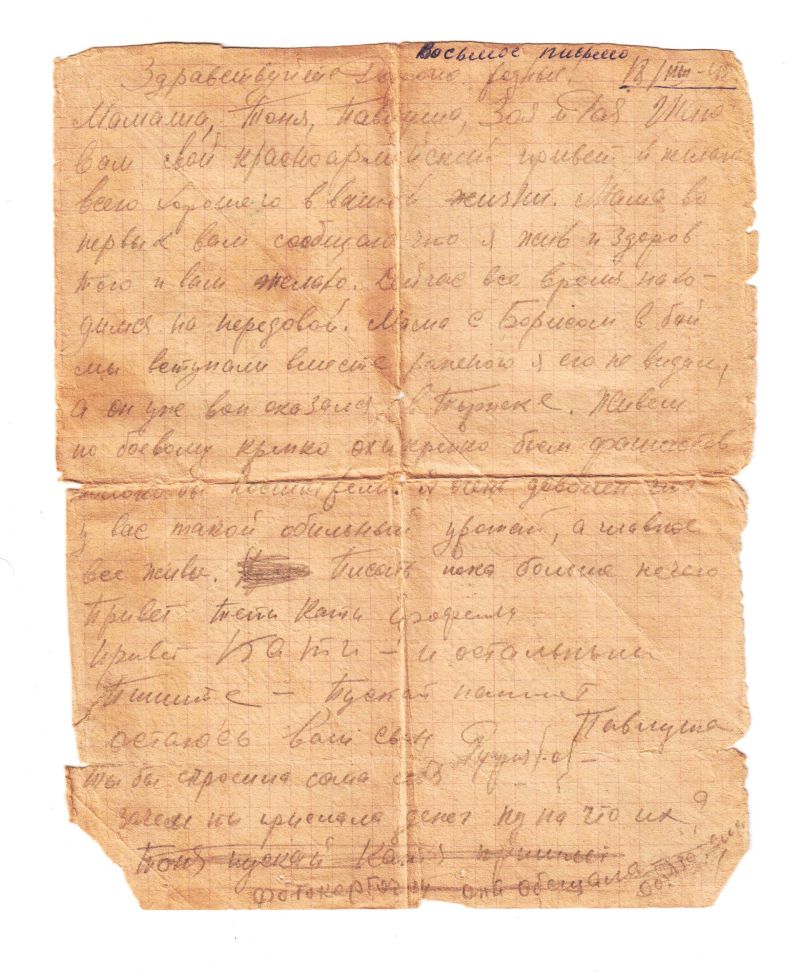 Восьмое письмо
Здравствуйте родные! 18/
Мамаша, Тоня, Павлуша, Зоя и Рая
вам свой красноармейский привет и желаю
всего хорошего в вашей жизни. Мама во
первых вам сообщаю что я жив и здоров
того и вам желаю. Сейчас все время нахо-
димся на передовой. Мама с Борисом в бой
мы вступали вместе раненого я его не видал,
а он уже вон оказался в. Живем
по боевому крепко бьем фашистов
я очень доволен что
у вас такой обильный урожай, а главное
все живы. Писать пока больше нечего
Привет Тети Кати
Привет Кати – и остальным
Пишите – Пускай пишет
Павлуша
остаюсь ваш сын
Ты бы спросила сама себя
зачем ты прислала денег ну на что их?
Тоня пускай Катя пришлет
фотокарточку она обещала